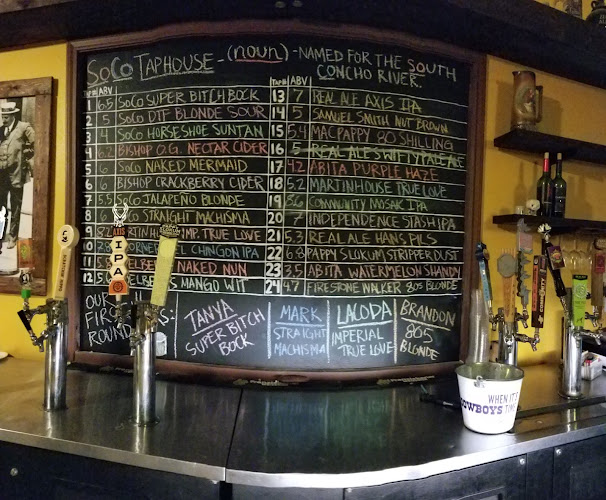 SoCo TAPHOUSE - (noun) - NAMED FOR THE SOUTH
CONCHO RIVER.
TAP# ABV
1 6.5 SOCO SUPER BITCH BOCK
2 5 SOCO DTF BLONDE SOUR
3 4 SOCO HORSESHOE SUNTAN
4 6.2 BISHOP O.G. NECTAR CIDER
5 SOCO NAKED MERMAID
6 6 BISHOP CRACKBERRY CIDER
7 5.5 SOCO JALAPEÑO BLONDE
8 SOCO STRAIGHT MACHISMA
9 IMP. TRUE LOVE
10 CHINGON IPA
11 NAKED NUN
12 5. MANGO WIT
TAP# ABV
13 7 REAL ALE AXIS IPA
14 5 SAMUEL SMITH NUT BROWN
15 5.4 MACPAPPY 80 SHILLING
16 5 REAL ALE WITTY PALE ALE
17 4.2 ABITA PURPLE HAZE
18 5.2 MARTINHOUSE TRUE LOVE
19 8.6 COMMUNITY MOSAIC IPA
20 7 INDEPENDENCE STASH IPA
21 5.2 REAL ALE HANS PILS
22 6.8 PAPPY SLOKUM STRIPPER DUST
23 3.5 ABITA WATERMELON SHANDY
24 4.7 FIRESTONE WALKER 805 BLONDE
OUR
FIRS
ROUND
TANYA
SUPER BITCH
BOCK
MARK
STRAIGHT
MACHISMA
LACODA
IMPERIAL
TRUE LOVE
BRANDON
805
BLONDE
AXIS
IPA
WHEN IT'S
COWBOYS TIME